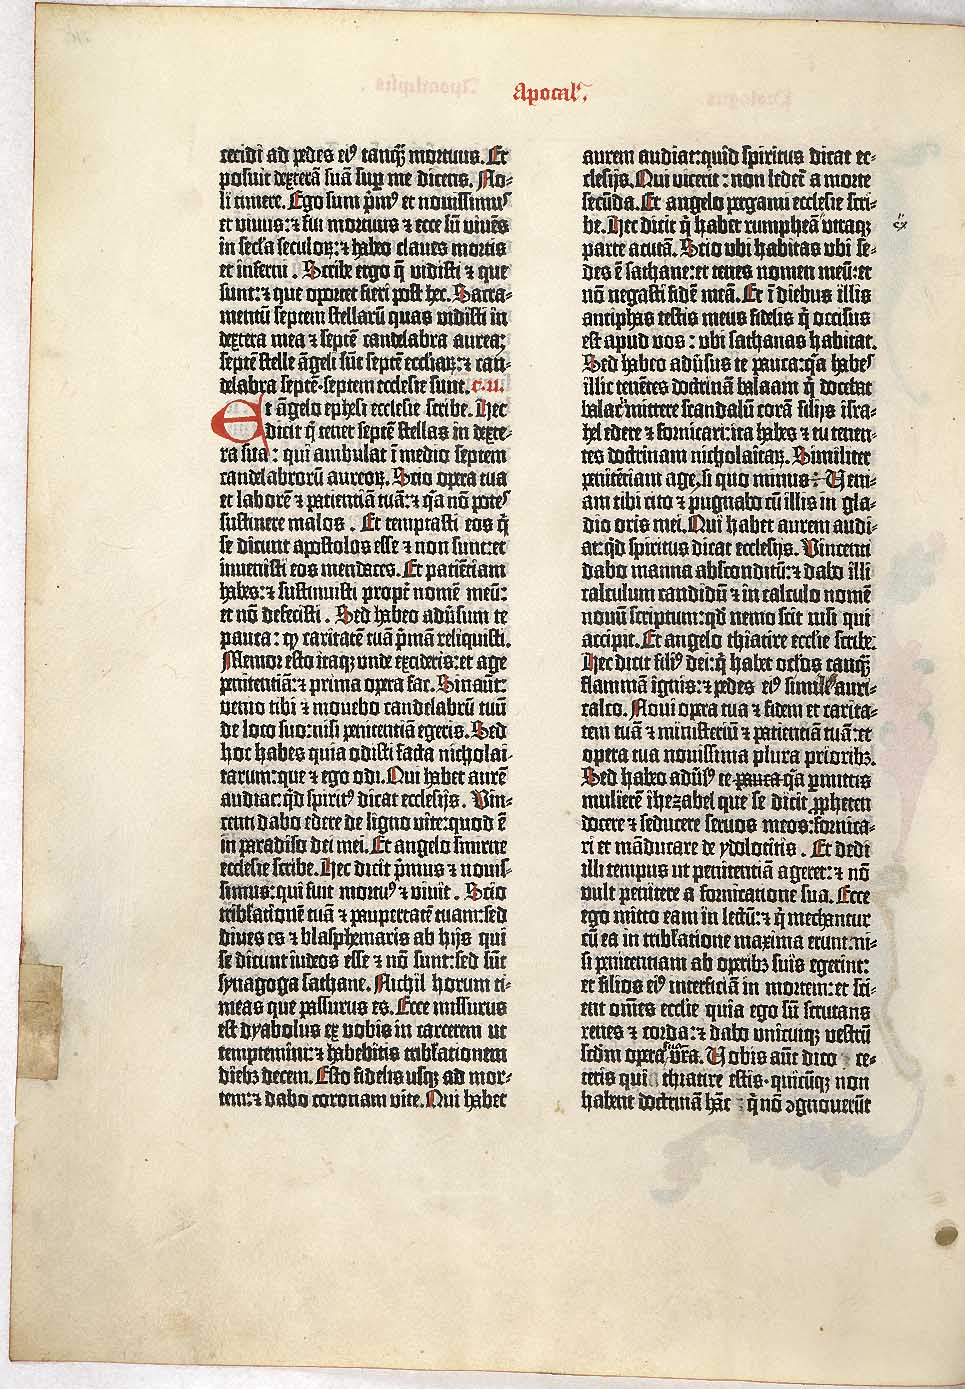 Apocal'.
cecidi ad pedes ei⁹ tanq̃ mortuus. Et
posuit dexterā suā sup me dicens. No-
li timere. Ego sum p̄m⁹ et nouissimus
et viuus: ⁊ fui mortuus ⁊ ecce sū viuēs
in secła seculoꝝ: ⁊ habeo claues mortis
et inferni. Scribe ergo q̄ vidisti ⁊ que
sunt: ⁊ que oportet fieri post hec. Sacra-
mentū septem stellarū quas vidisti in
dextera mea ⁊ septē candelabra aurea:
septē stelle āgeli sūt septē eccliaꝝ: ⁊ can-
delabra septē· septem ecclesie sunt. c. II.
Et āgelo ephesi ecclesie scribe. Hec
dicit q̄ tenet septē stellas in dexte-
ra sua: qui ambulat ī medio septem
candelabrorū aureoꝝ. Scio opera tua
et laborē ⁊ patientiā tuā: ⁊ q̄a nō potes
sustinere malos. Et temptasti eos q̄
se dicunt apostolos esse ⁊ non sunt: et
inuenisti eos mendaces. Et patiētiam
habes: ⁊ sustinuisti propt̄ nomē meū:
et nō defecisti. Sed habeo adūsum te
pauca: ꝙ caritatē tuā p̄mā reliquisti.
Memor esto itaqꝫ unde excideris: et age
penitentiā: ⁊ prima opera fac. Sinaūt:
venio tibi ⁊ mouebo candelabrū tuū
de loco suo: nisi penitentiā egeris. Sed
hoc habes quia odisti facta nicholai-
tarum: que ⁊ ego odi. Qui habet aurē
audiat: q̄d spirit⁹ dicat ecclesijs. Vin-
centi dabo edere de ligno vite: quod ē
in paradiso dei mei. Et angelo smirne
ecclesie scribe. Hec dicit p̄mus ⁊ nouis-
simus: qui fuit mortu⁹ ⁊ viuit. Scio
tribłationē tuā ⁊ paupertatē tuam: sed
diues es ⁊ blasphemaris ab hijs qui
se dicunt iudeos esse ⁊ nō sunt: sed sūt
synagoga sathane. Nichil horum ti-
meas que passurus es. Ecce missurus
est dyabolus ex vobis in carcerem ut
temptemini: ⁊ habebitis tribłationem
diebꝫ decem. Esto fidelis usqꝫ ad mor-
tem: ⁊ dabo coronam vite. Qui habet
aurem audiat: quid spiritus dicat ec-
clesijs. Qui vicerit: non ledet̄ a morte
secūda. Et angelo pergami ecclesie scri-
be. Hec dicit q̄ habet rumpheā vtraqꝫ
parte acutā. Scio ubi habitas ubi se-
des ē sathane: et tenes nomen meū: et
nō negasti fidē meā. Et ī diebus illis
antiphas testis meus fidelis q̄ occisus
est apud vos: ubi sathanas habitat.
Sed habeo adūsus te pauca: q̄a habes
illic tenētes doctrinā balaam q̄ docebat
balac mittere scandalū corā filijs isra-
hel edere ⁊ fornicari: ita habes ⁊ tu tenen-
tes doctrinam nicholaitaꝝ. Similiter
penitētiam age, si quo minus: Veni-
am tibi cito ⁊ pugnabo cū illis in gla-
dio oris mei. Qui habet aurem audi-
at: q̄d spiritus dicat ecclesijs. Vincenti
dabo manna absconditū: ⁊ dabo illi
calculum candidū ⁊ in calculo nomē
nouū scriptum: qd̄ nemo scit nisi qui
accipit. Et angelo thiatire ecclie scribe.
Hec dicit fili⁹ dei: q̄ habet oclōs tanq̃
flammā ignis: ⁊ pedes ei⁹ similes auri-
calco. Noui opera tua ⁊ fidem et carita-
tem tuā ⁊ ministeriū ⁊ patientiā tuā: et
opera tua nouissima plura prioribꝫ.
Sed habeo adūs⁹ te pauca q̄a p̄mittis
mulierē ihezabel que se dicit ꝓpheten
docere ⁊ seducere seruos meos: fornica-
ri et māducare de ydolotitis. Et dedi
illi tempus ut penitentiā ageret: ⁊ nō
vult penitere a fornicatione sua. Ecce
ego mitto eam in lectū: ⁊ q̄ mechantur
cū ea in tribłatione maxima erunt: ni-
si penitentiam ab operibꝫ suis egerint:
et filios ei⁹ interficiā in mortem: et sci-
ent om̄es ecclie quia ego sū scrutans
renes ⁊ corda: ⁊ dabo unicuiqꝫ vestrū
scdm opera sua. Vobis aūt dico ce-
teris qui thiatire estis· quicūqꝫ non
habent doctrinā hāc ⁊ q̄ nō ꝯgnouerūt